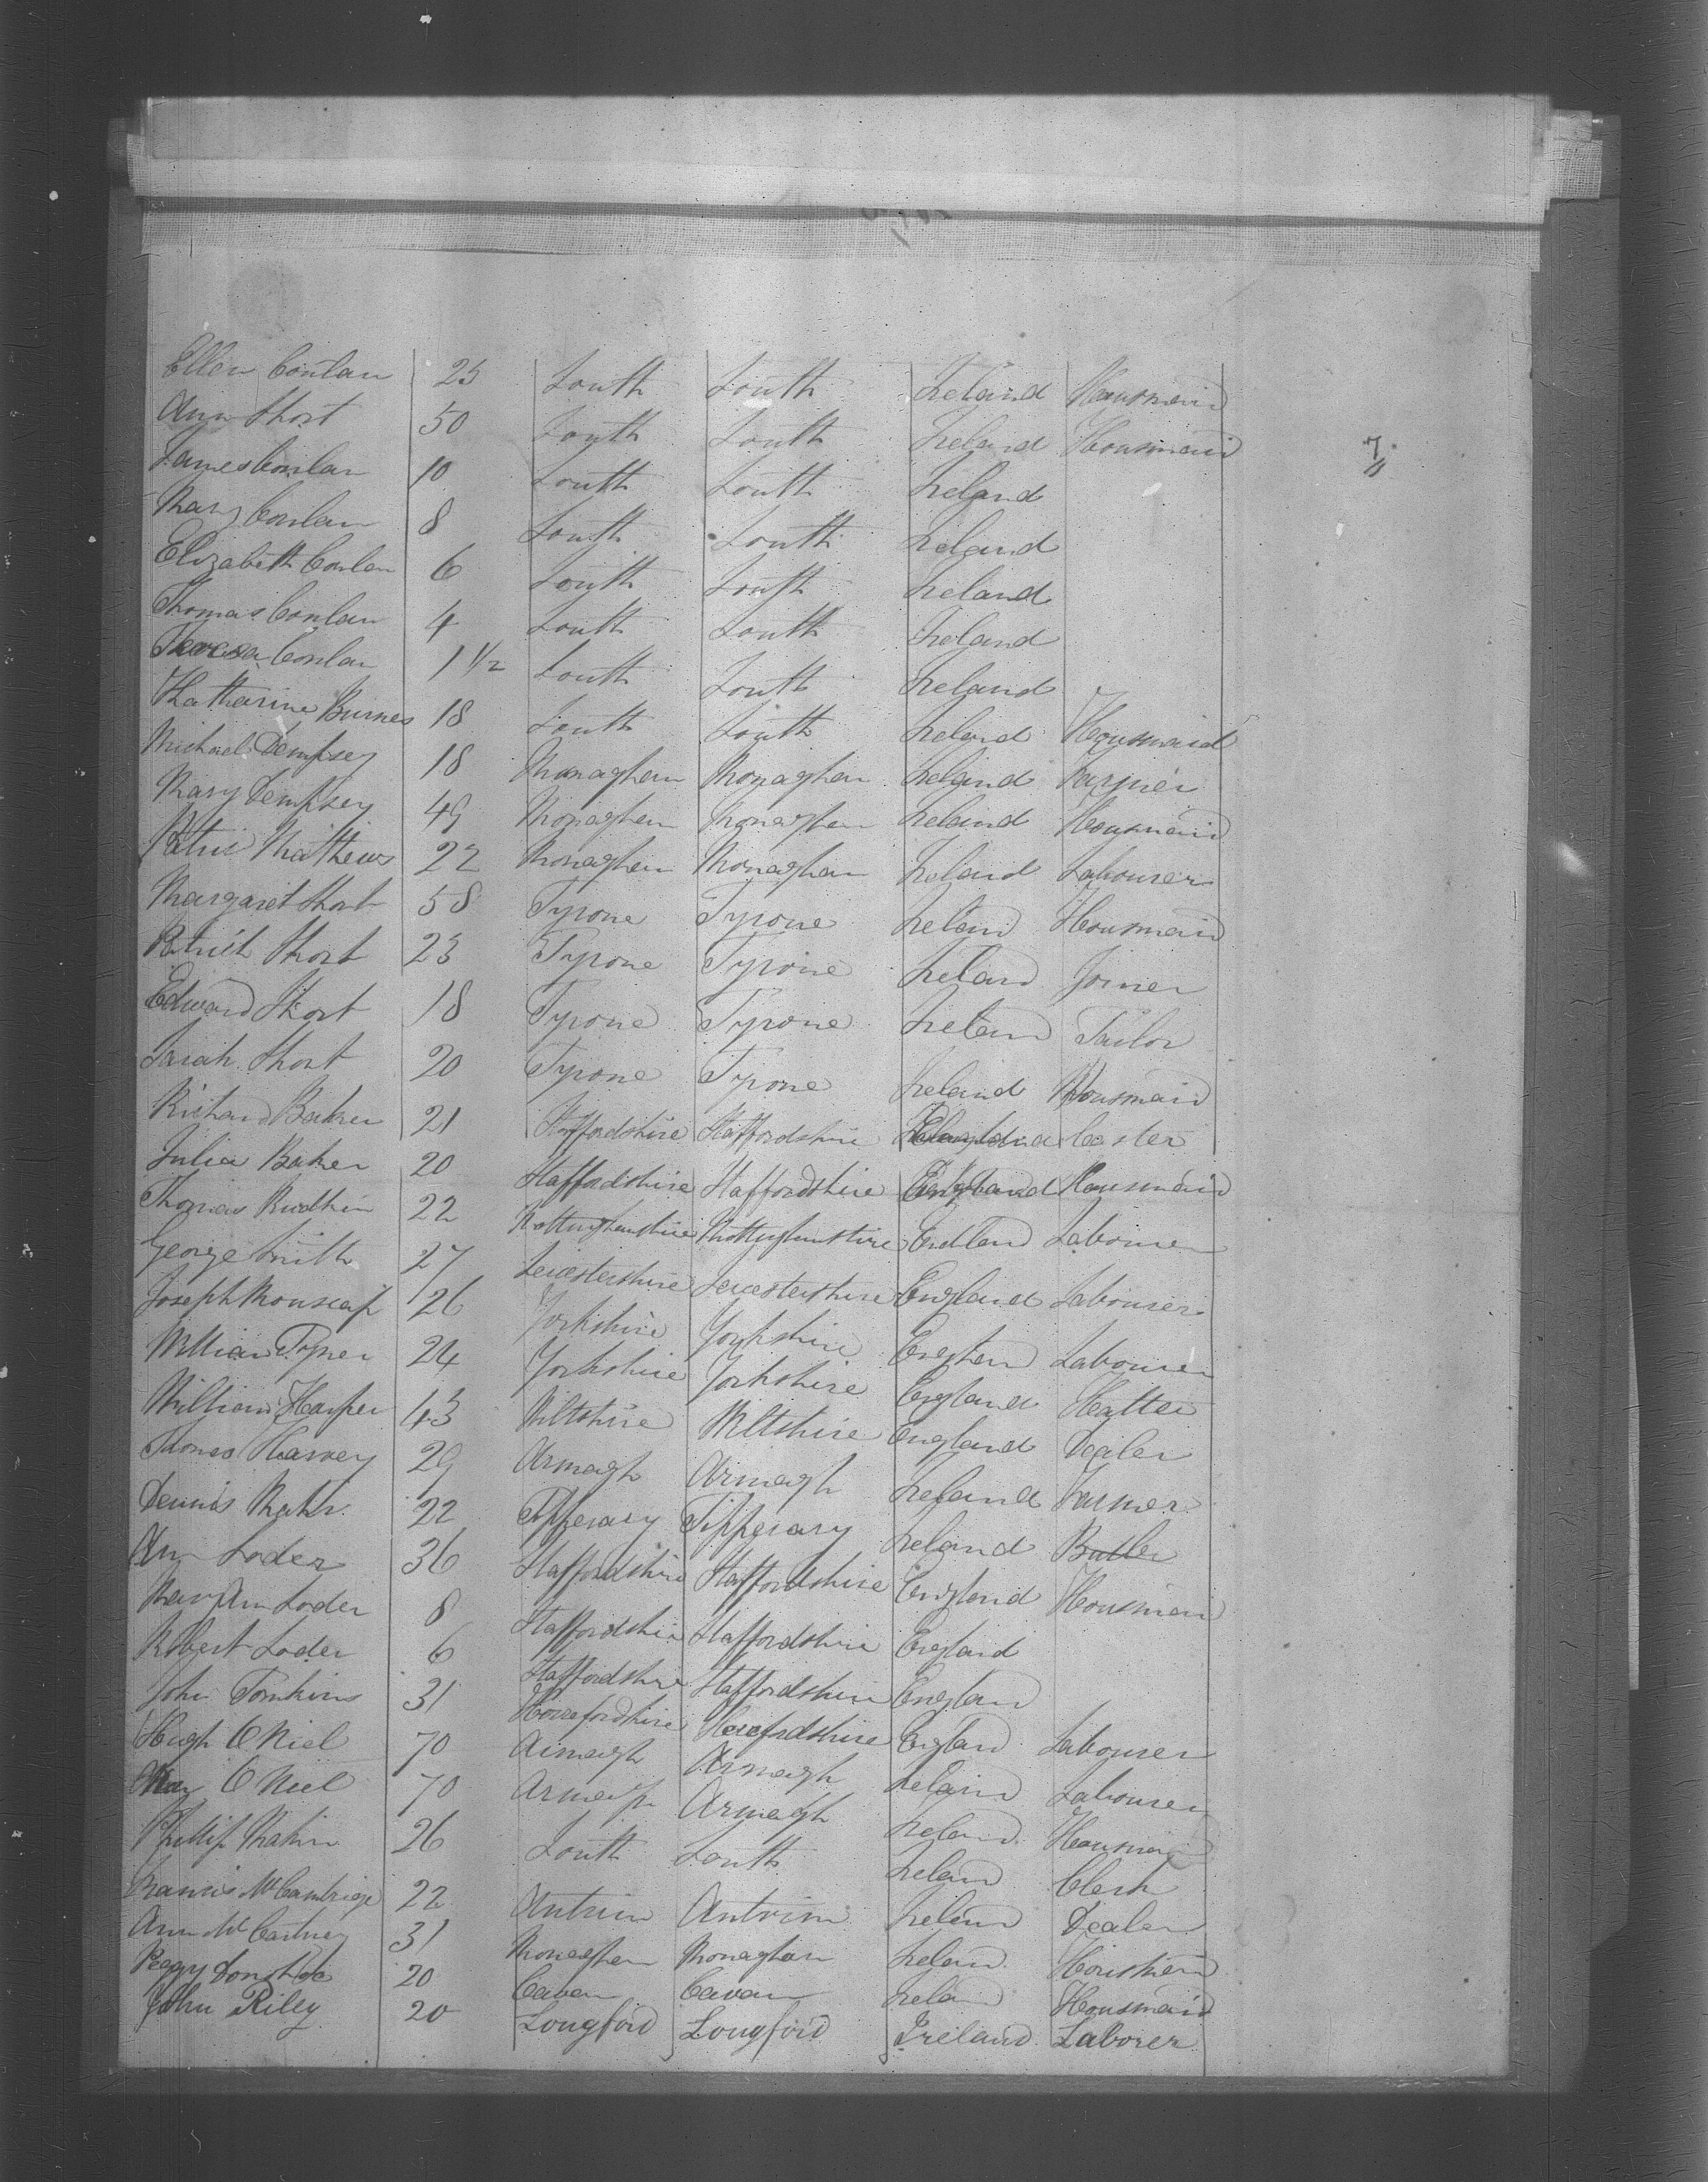 Ellen Conlan 25 Louth Louth Ireland Housmaid
Ann Short 50 Louth Louth Ireland Housmaid
James Conlan 10 Louth Louth Ireland
Mary Conlan 8 Louth Louth Ireland
Elizabeth Conlan 6 Louth Louth Ireland
Thomas Conlan 4 Louth Louth Ireland
Theresa Conlan 1 1/2 Louth Louth Ireland
Katharine Burnes 18 Louth Louth Ireland Housmaid
Michael Dempsey 18 Monaghan Monaghan Ireland Farmer
Mary Dempsey 49 Monaghan Monaghan Ireland Housmaid
Mathews 22 Monaghan Monaghan Ireland Labourer
Margaret Short 58 Tyrone Tyrone Ireland Housmaid
Patrick Short 23 Tyrone Tyrone Ireland Joiner
Edward Short 18 Tyrone Tyrone Ireland Tailor
Sarah Short 20 Tyrone Tyrone Ireland Housmaid
Richard Baker 21 Staffordshire Staffordshire Caster
Julia Baker 20 Staffordshire Staffordshire England Housmaid
Thomas 22 Nottinghamshire Nottinghamshire England Labourer
George Smith 27 Leicestershire Leicestershire England Labourer
Joseph 26 Yorkshire Yorkshire England Labourer
William 24 Yorkshire Yorkshire England Hatter
William Harper 43 Wiltshire Wiltshire England Dealer
Thomas Harvey 29 Armagh Armagh Ireland Farmer
Dennis 22 Tipperary Tipperary Ireland Butler
Ann Loder 36 Staffordshire Staffordshire England Housmaid
Mary Ann Loder 8 Staffordshire Staffordshire England
Robert Loder 6 Staffordshire Staffordshire England
John Tomkins 31 Herefordshire England Labourer
Hugh O Niel 70 Armagh Armagh Ireland Labourer
Mary O Niel 70 Armagh Armagh Ireland Housmaid
Phillip 26 Louth Louth Ireland Clerk
Francis 22 Antrim Antrim Ireland Dealer
Ann McCartney 31 Monaghan Monaghan Ireland Housmaid
Peggy 20 Cavan Cavan Ireland Housmaid
John Riley 20 Longford Longford Ireland Laborer